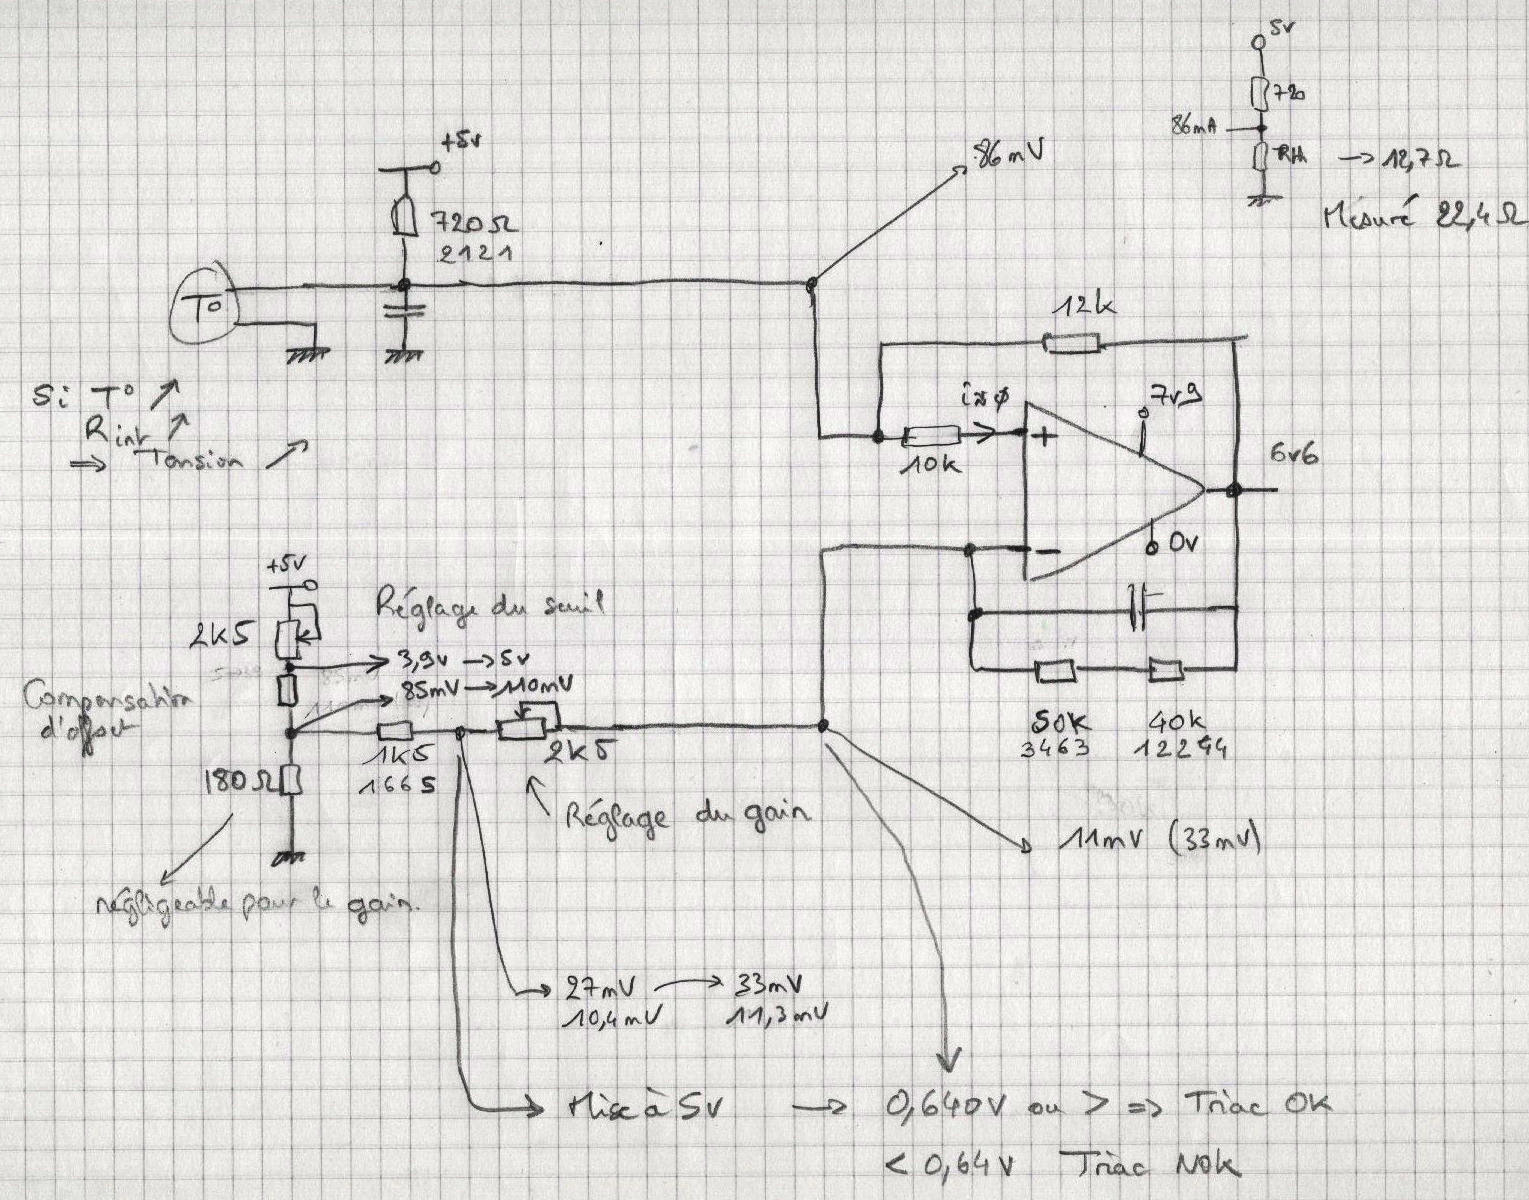 5v
720
86mA
→ 12,7Ω
Mésuré 22,4Ω
+5v
86mV
720Ω
2121
T°
12k
Si T° ↗
Rint ↗
⇒ Tension ↗
i≈φ
7v9
+
10k
6v6
-
0v
+5v
Réglage du seuil
2k5
3,9v → 5v
85mV → 110mV
Compensation
d'offset
1k5
1665
2k5
50k
3463
40k
12244
180Ω
Réglage du gain
11mV (33mV)
négligeable pour le gain.
27mV → 33mV
10,4mV 11,3mV
Mise à 5v → 0,640V ou > ⇒ Triac OK
< 0,64V Triac NOK